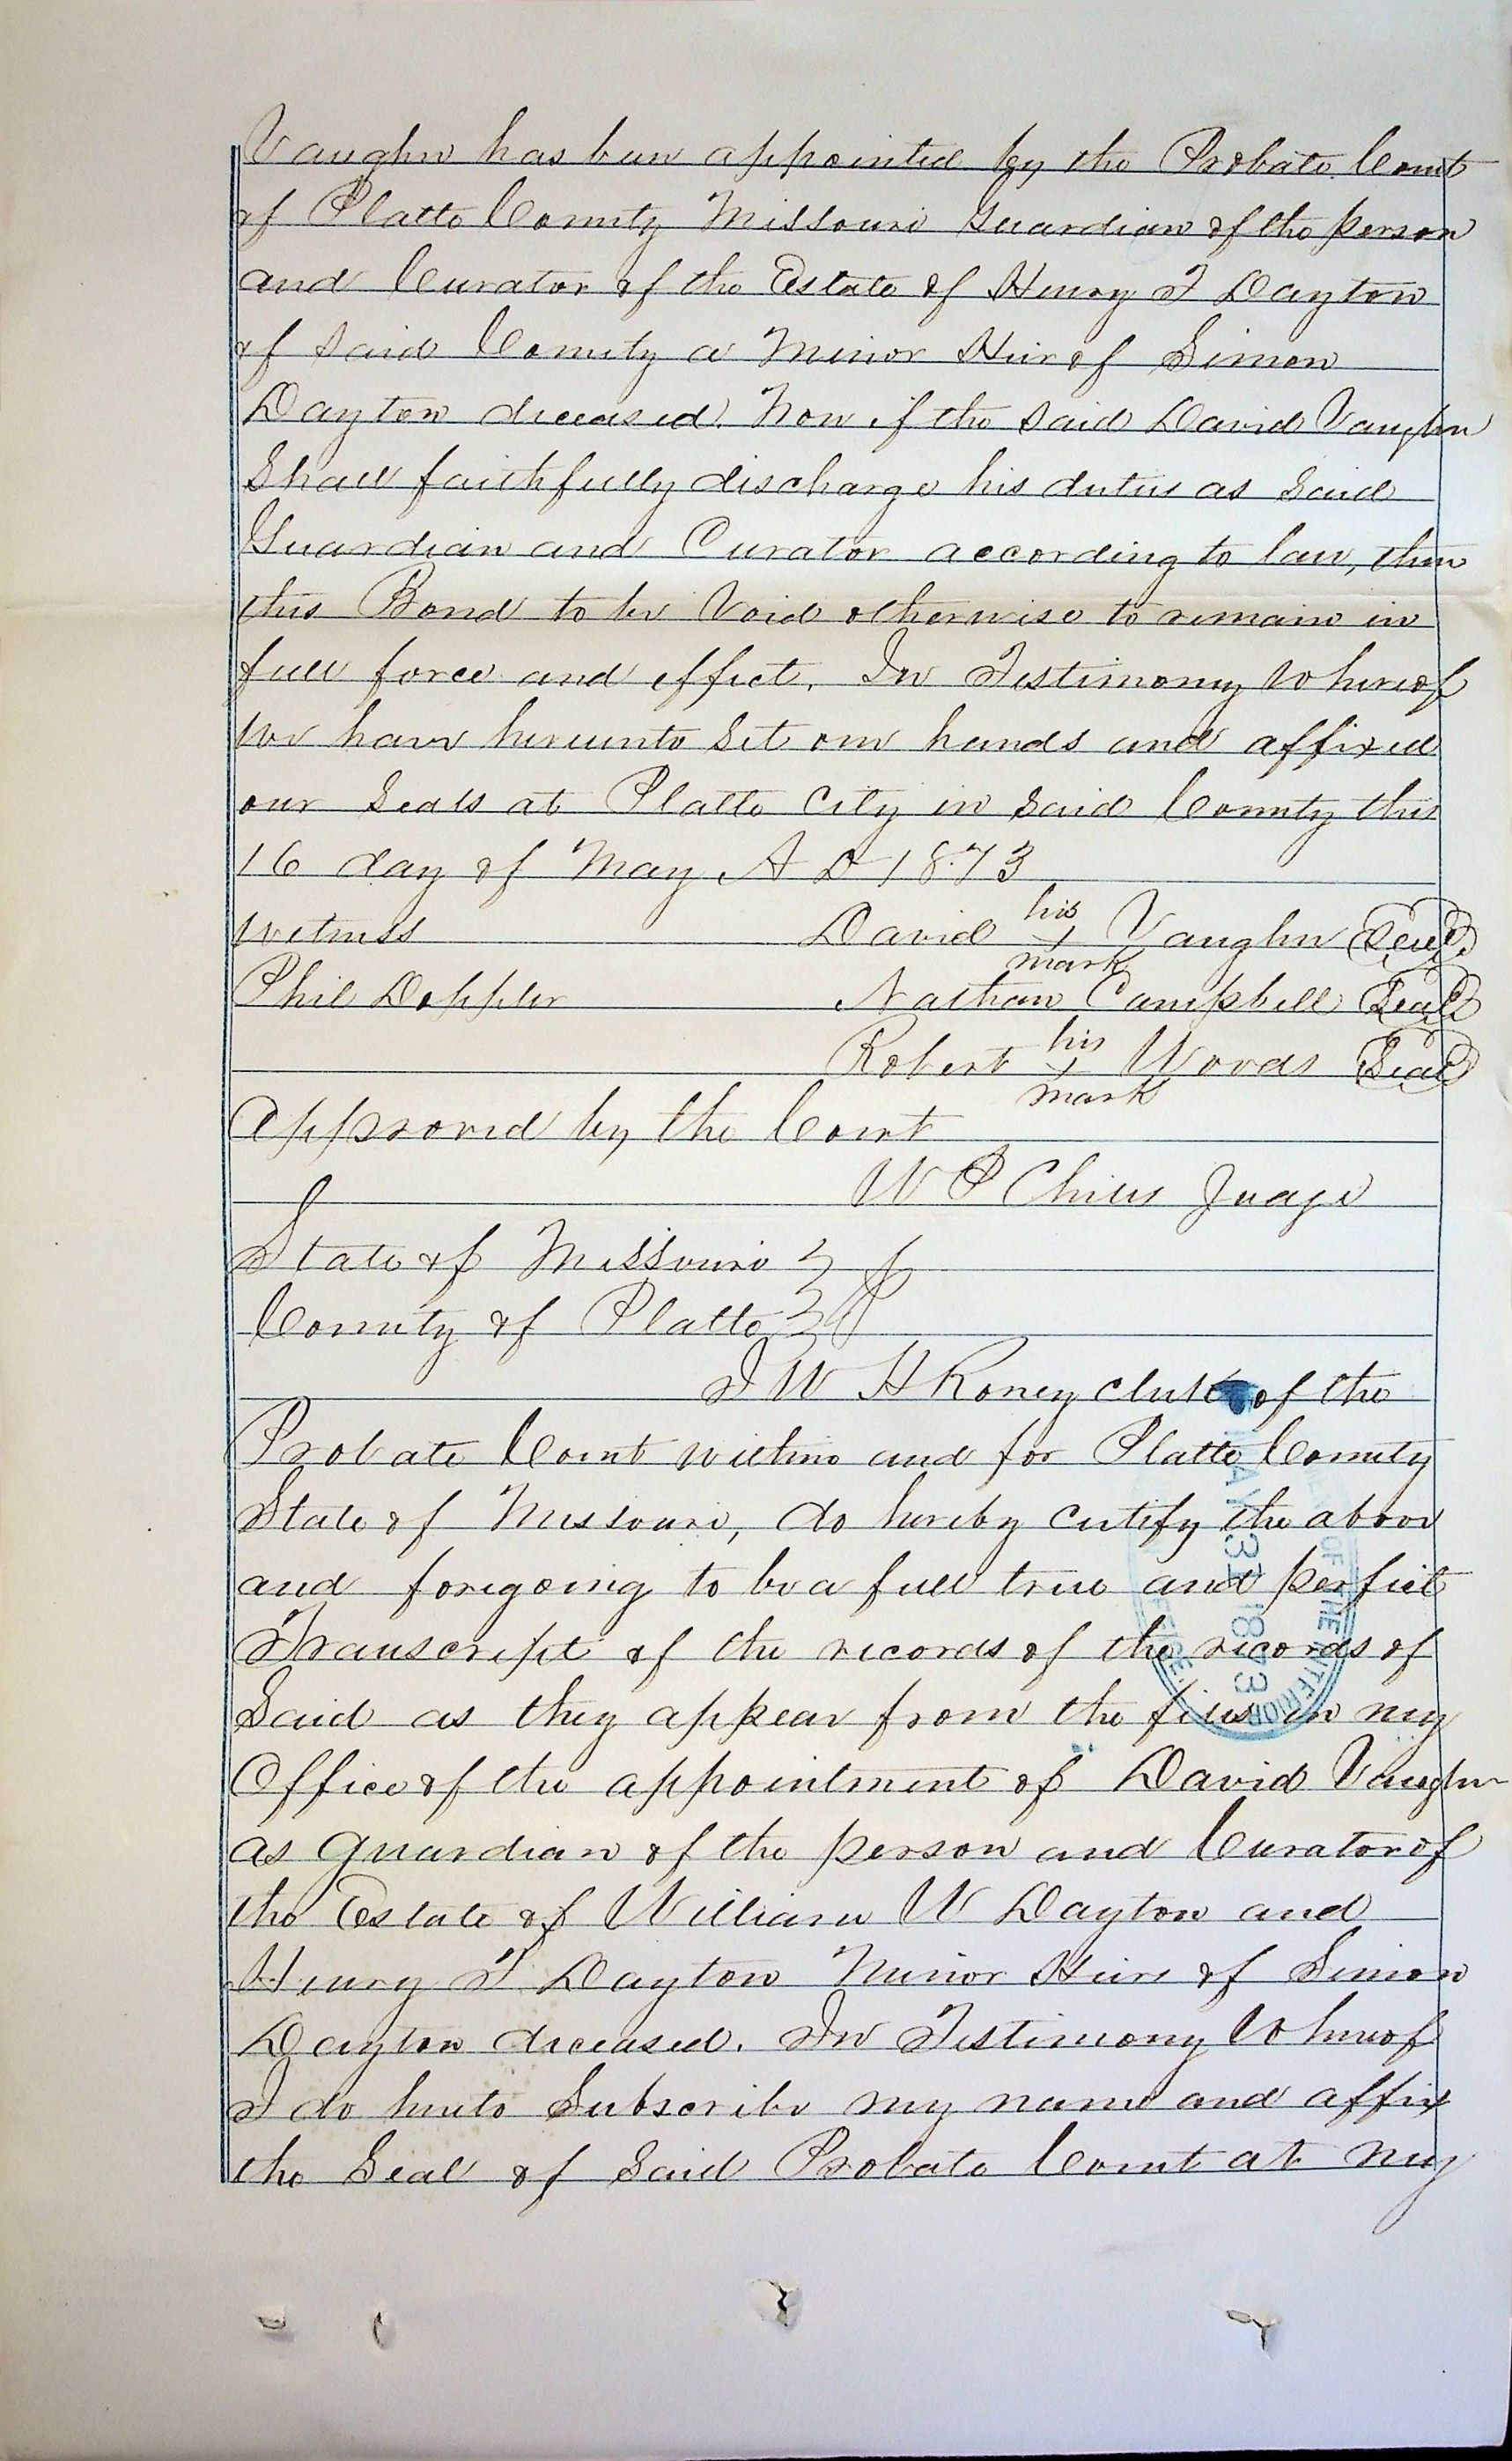 Vaughn has been appointed by the Probate Court
of Platte County Missouri Guardian of the person
and Curator of the Estate of Henry T Dayton
of said County a Minor Heir of Simon
Dayton deceased. Now if the said David Vaughn
Shall faithfully discharge his duties as said
Guardian and Curator according to law, then
this Bond to be Void otherwise to remain in
full force and effect. In Testimony Whereof
We have hereunto Set our hands and affixed
our Seals at Platte City in said County this
16 day of May A D 1873
Witness David his x mark Vaughn Seal
Phil Doppler Nathan Campbell Seal
Robert his x mark Woods Seal
Approved by the Court
W P Chiles Judge
State of Missouri }
County of Platte } SS
I W H Roney clerk of the
Probate Court within and for Platte County
State of Missouri, do hereby certify the above
and foregoing to be a full true and perfect
Transcript of the records of the records of
Said as they appear from the files in my
Office of the appointment of David Vaughn
as guardian of the person and Curator of
the Estate of William W Dayton and
Henry T Dayton Minor Heirs of Simon
Dayton deceased. In Testimony Whereof
I do hereto Subscribe my name and affix
the Seal of Said Probate Court at my
OF THE INTERIOR
MAY 31 1873
OFFICE.